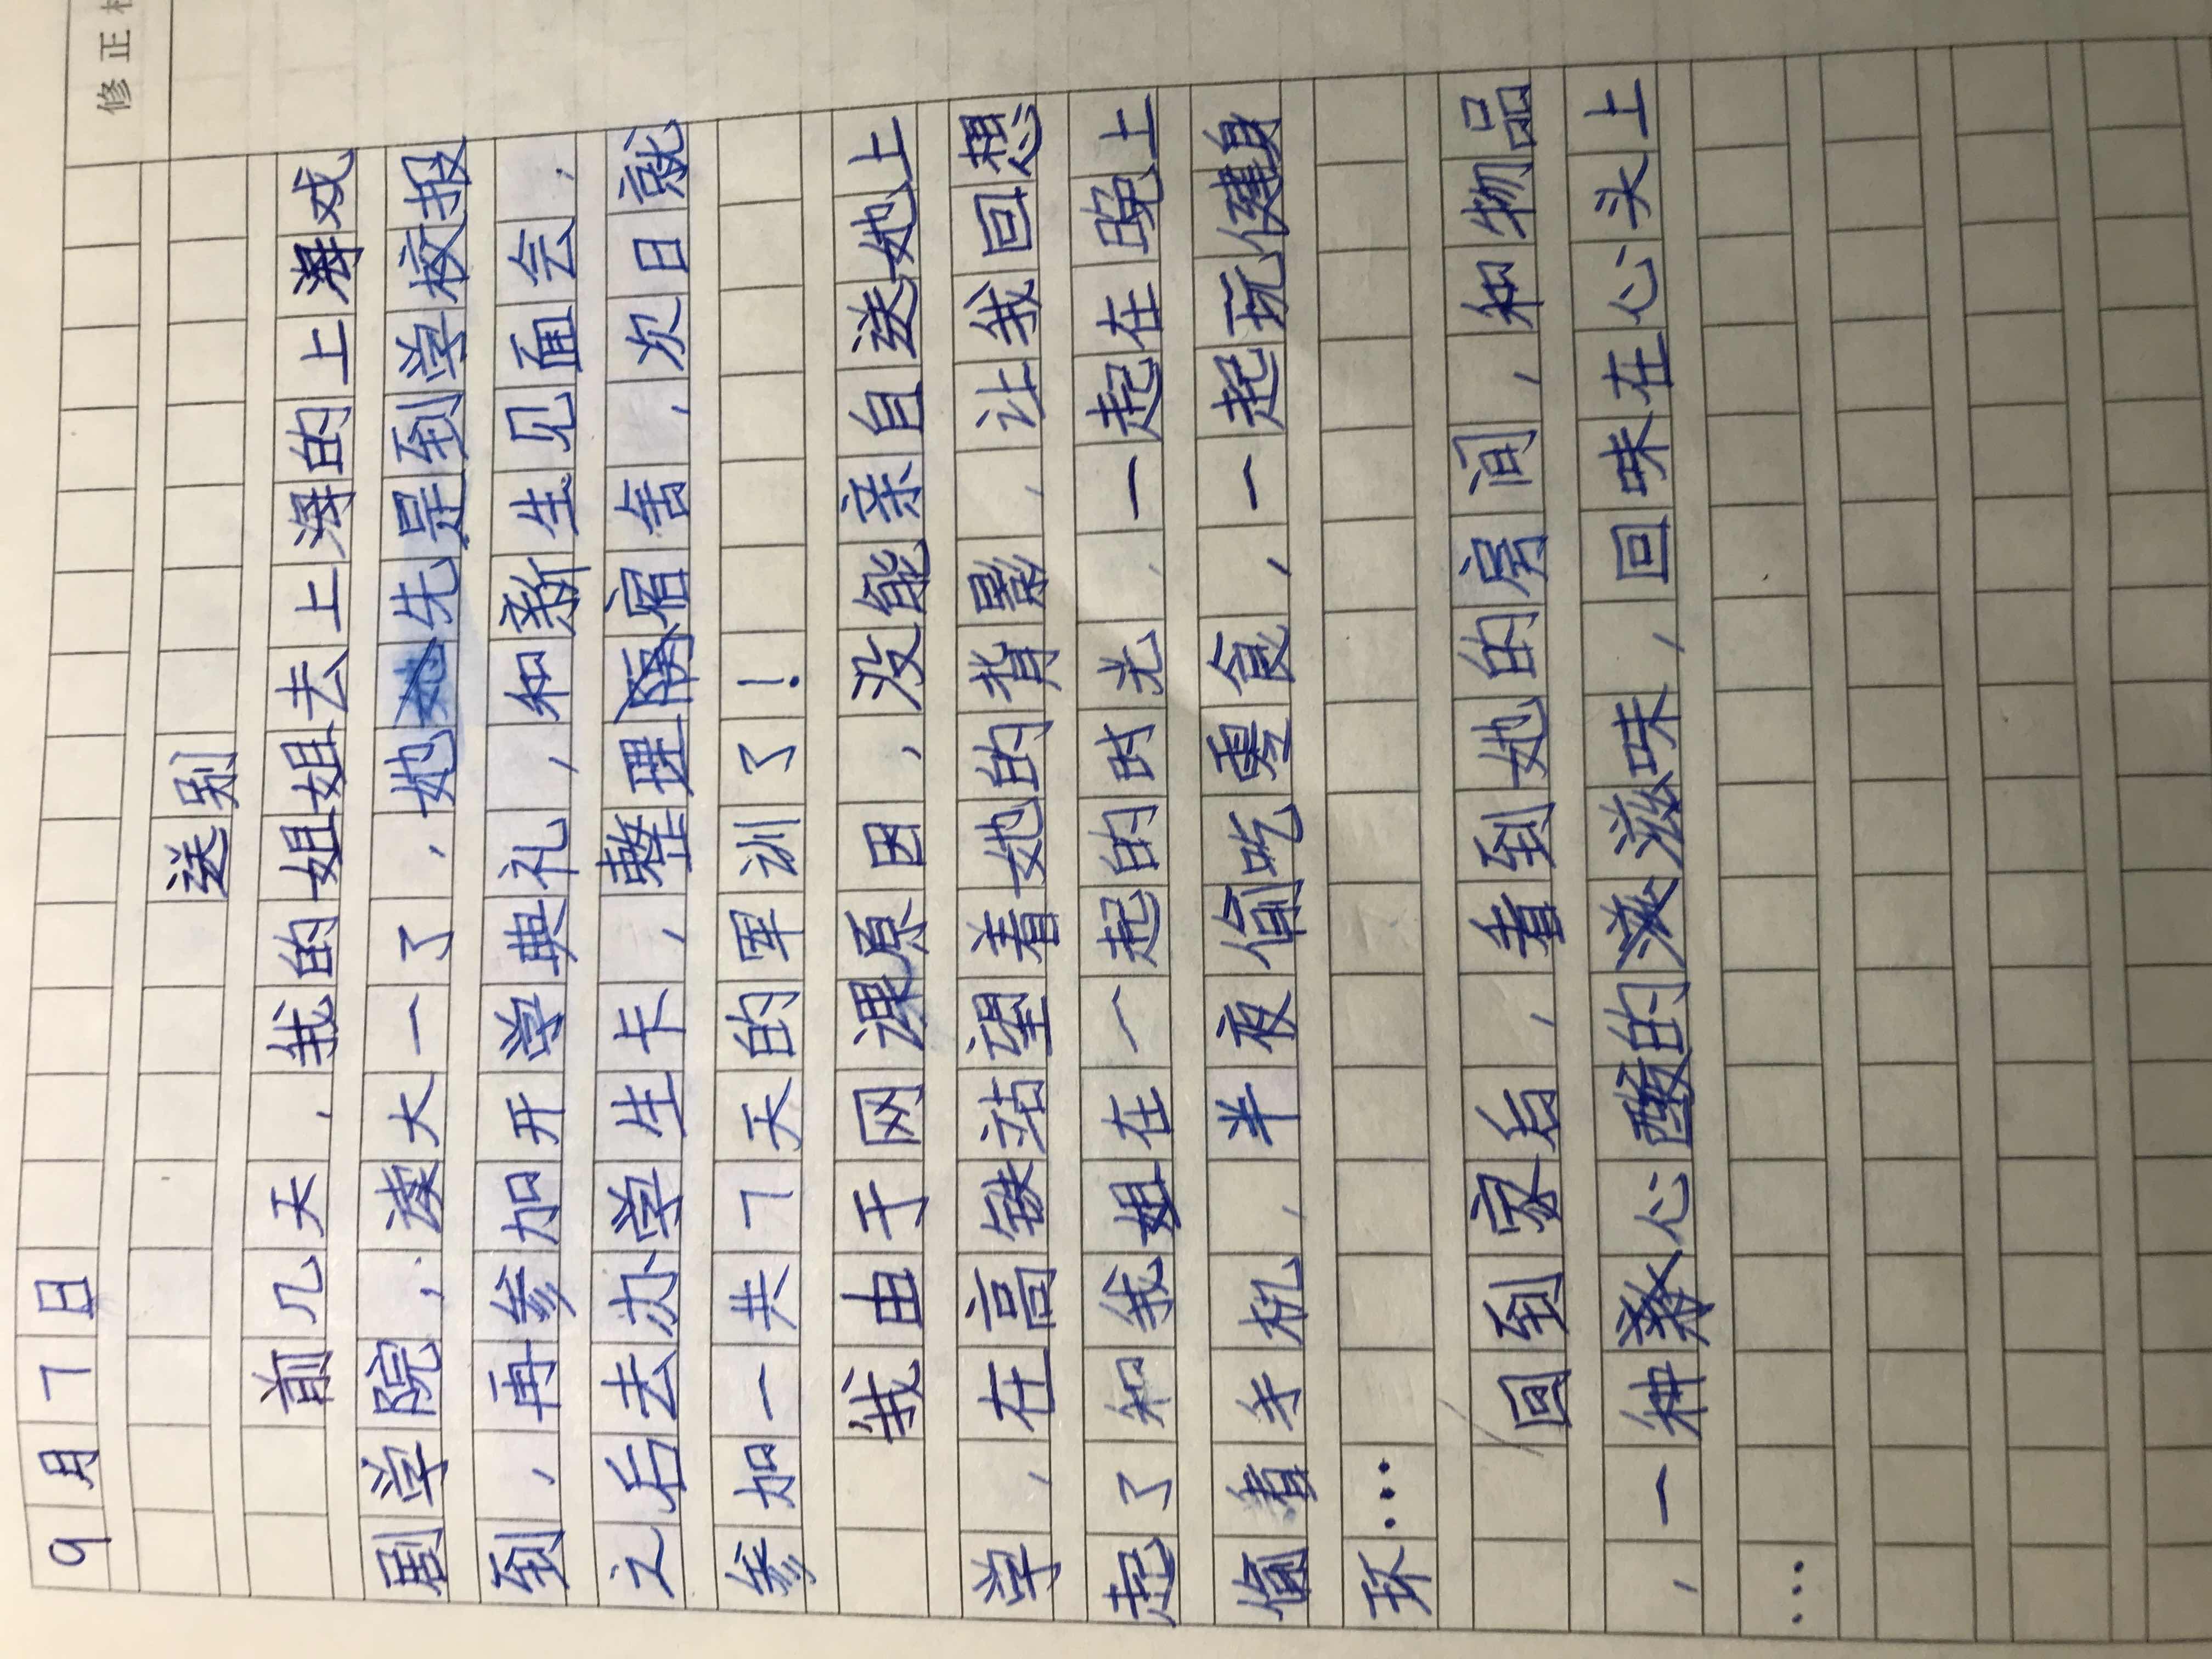 修正
9月7日
送别
前几天，我的姐姐去上海的上海戏
剧学院，读大一了，她先是到学校报
到，再参加开学典礼，和新生见面会，
之后去办学生卡，整理宿舍，次日就
参加一共7天的军训了！
我由于网课原因，没能亲自送她上
学，在高铁站望着她的背影，让我回想
起了和我姐在一起的时光，一起在晚上
偷看手机，半夜偷吃零食，一起玩健身
环…
回到家后，看到她的房间，和物品
，一种心酸的滋味，回味在心头上
…